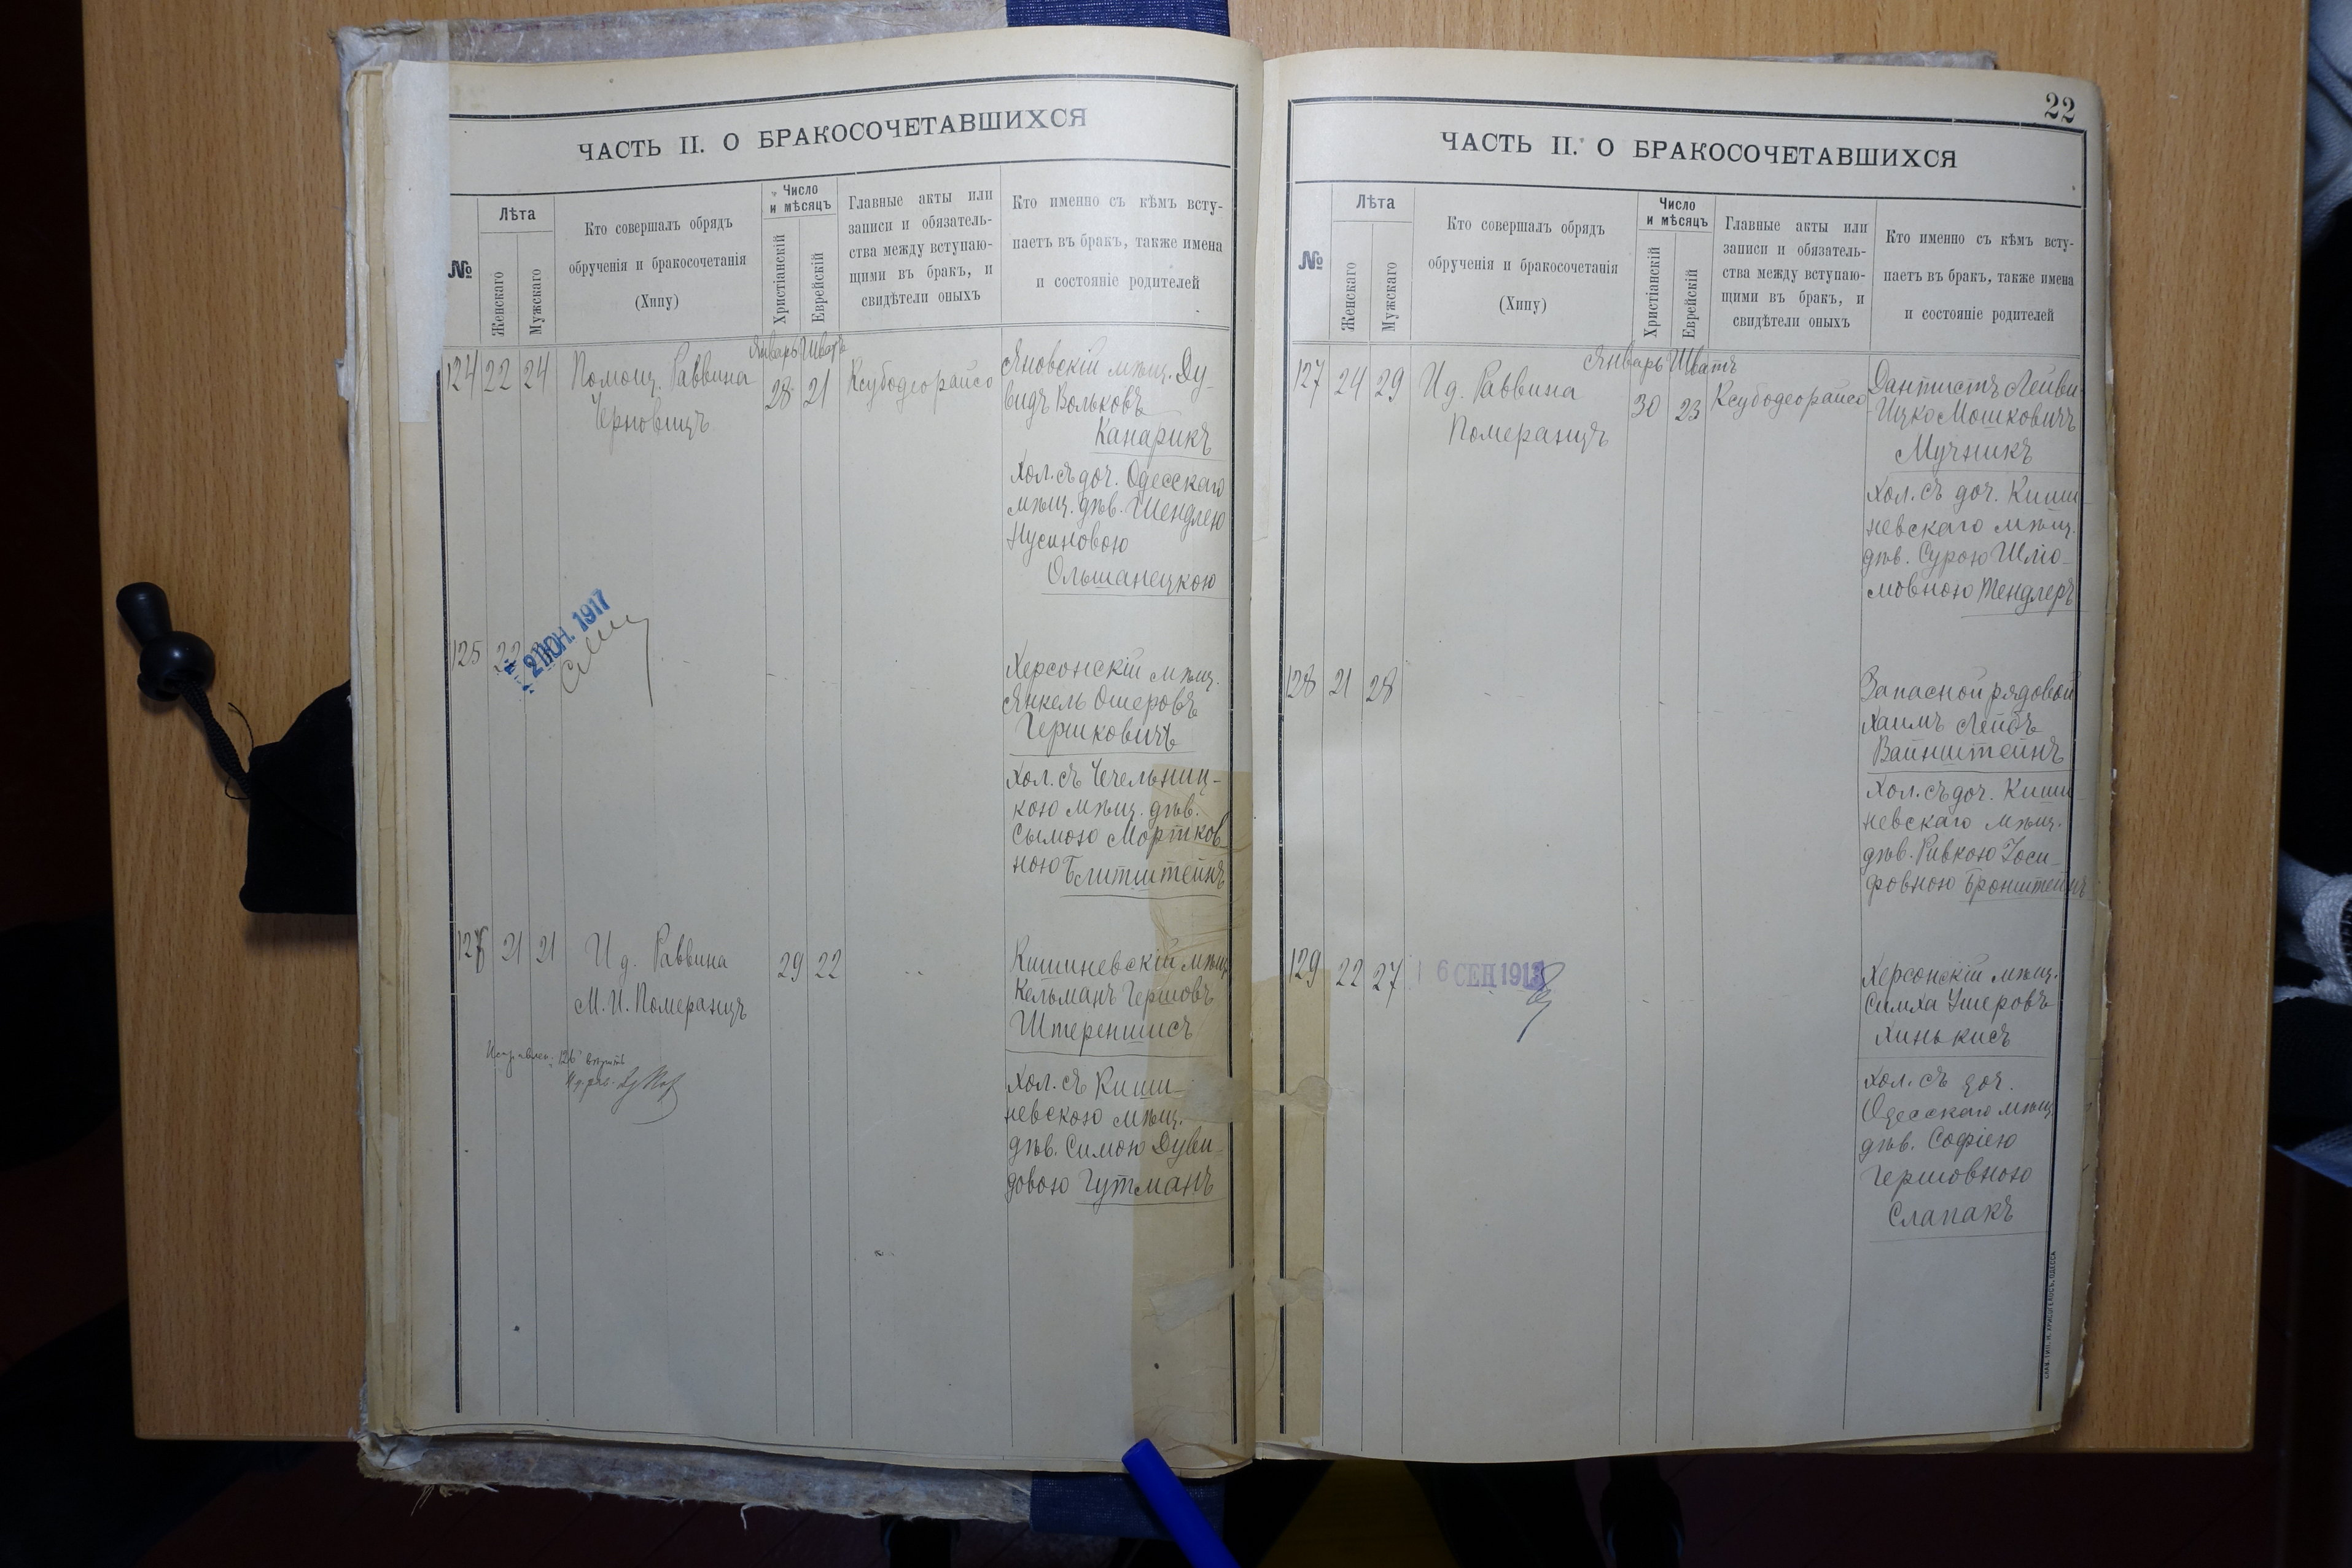 ЧАСТЬ II. О БРАКОСОЧЕТАВШИХСЯ
№
Лѣта
Женскаго
Мужскаго
Кто совершалъ обрядъ
обрученія и бракосочетанія
(Хипу)
Число
и мѣсяцъ
Христіанскій
Еврейскій
Главные акты или
записи и обязатель-
ства между вступаю-
щими въ бракъ, и
свидѣтели оныхъ
Кто именно съ кѣмъ всту-
паетъ въ бракъ, также имена
и состояніе родителей
124 22 24
Помощ. Раввина
Черновицъ
Январь Шватъ
28 21
Ксубодеорайсо
Яновскій мѣщ. Ду-
видъ Вольковъ
Канарикъ
Хол. съ доч. Одесскаго
мѣщ. дѣв. Шендлею
Нусиновою
Ольшанецкою
125 22
2 ІЮН. 1917
Херсонскій мѣщ.
Янкель Ошеровъ
Гершковичъ
Хол. съ Чечельниц-
кою мѣщ. дѣв.
Сымою Мортков-
ною Блитштейнъ
126 21 21
И д. Раввина
М. И. Померанцъ
29 22
Кишиневскій мѣщ.
Кельманъ Гершовъ
Штереншисъ
Хол. съ Киши-
невскою мѣщ.
дѣв. Симою Дуви-
довою Гутманъ
Исправлен. 126 вѣрить
22
ЧАСТЬ II. О БРАКОСОЧЕТАВШИХСЯ
№
Лѣта
Женскаго
Мужскаго
Кто совершалъ обрядъ
обрученія и бракосочетанія
(Хипу)
Число
и мѣсяцъ
Христіанскій
Еврейскій
Главные акты или
записи и обязатель-
ства между вступаю-
щими въ бракъ, и
свидѣтели оныхъ
Кто именно съ кѣмъ всту-
паетъ въ бракъ, также имена
и состояніе родителей
127 24 29
И д. Раввина
Померанцъ
Январь Шватъ
30 23
Ксубодеорайсо
Дантистъ Лейви
Ицко Мошковичъ
Мучникъ
Хол. съ доч. Киши-
невскаго мѣщ.
дѣв. Сурою Шлио-
мовною Тендлеръ
128 21 28
Запасной рядовой
Хаимъ Лейбъ
Вайнштейнъ
Хол. съ доч. Киши-
невскаго мѣщ.
дѣв. Ривкою Іоси-
фовною Бронштейнъ
129 22 27
6 СЕН 1913
Херсонскій мѣщ.
Симха Ушеровъ
Хинькисъ
Хол. съ доч.
Одесскаго мѣщ.
дѣв. Софіею
Гершовною
Слапакъ